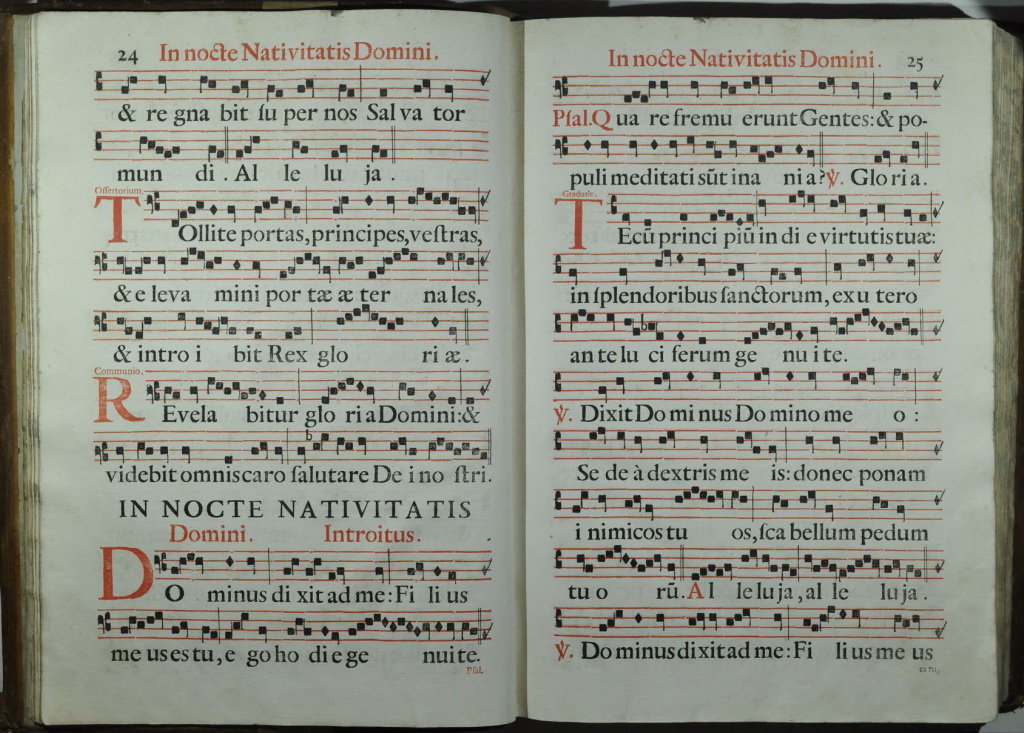 24 In nocte Nativitatis Domini.
& re gna bit ſu per nos Sal va tor
mun di . Al le lu ja .
Offertorium.
TOllite portas, principes, veſtras,
& e leva mini por tæ æ ter na les,
& intro i bit Rex glo ri æ .
Communio.
REvela bitur glo ri a Domini: &
videbit omnis caro ſalutare De i no ſtri.
IN NOCTE NATIVITATIS
Domini. Introitus.
DO minus di xit ad me: Fi li us
me us es tu, e go ho di e ge nui te.
Pſal.
In nocte Nativitatis Domini. 25
Pſal. Qua re fremu erunt Gentes: & po-
puli meditati sūt ina ni a? ℣. Glo ri a.
Graduale.
TEcū princi piū in di e virtutis tuæ:
in ſplendoribus ſanctorum, ex u tero
an te lu ci ferum ge nu i te.
℣. Dixit Do mi nus Do mino me o :
Se de à dextris me is: donec ponam
i nimicos tu os, ſca bellum pedum
tu o rū. Al le lu ja, al le lu ja .
℣. Do minus dixit ad me: Fi li us me us
es tu,